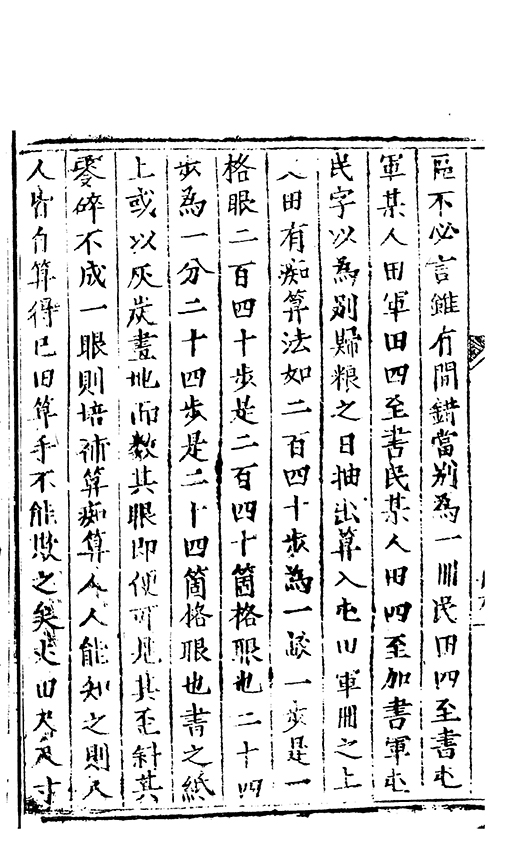 區不必言雖有間錯當別為一冊民田四至書屯
軍某人田軍田四至書民某人田四至加書軍屯
民字以為別歸粮之日抽出算入屯田軍冊之上
田有痴算法如二百四十步為一畝一步是一
格眼二百四十步是二百四十箇格眼也二十四
步為一分二十四步是二十四箇格眼也書之紙
上或以灰炭畫地而数其眼即便可見其歪斜其
零碎不成一眼則培補算痴算人人能知之則人
人皆自算得已旧算手不能欺之矣丈田大尺寸